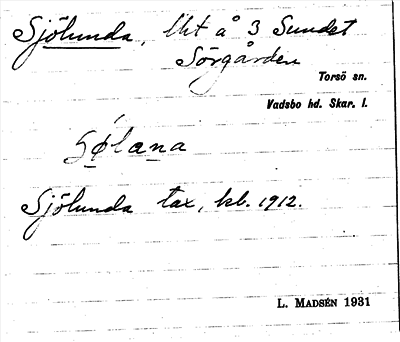 Sjölunda, lht å 3 Sundet
Sörgården
Torsö sn.
Vadsbo hd. Skar. l.
Sjölunda tax, kb. 1912.
L. MADSÉN 1931